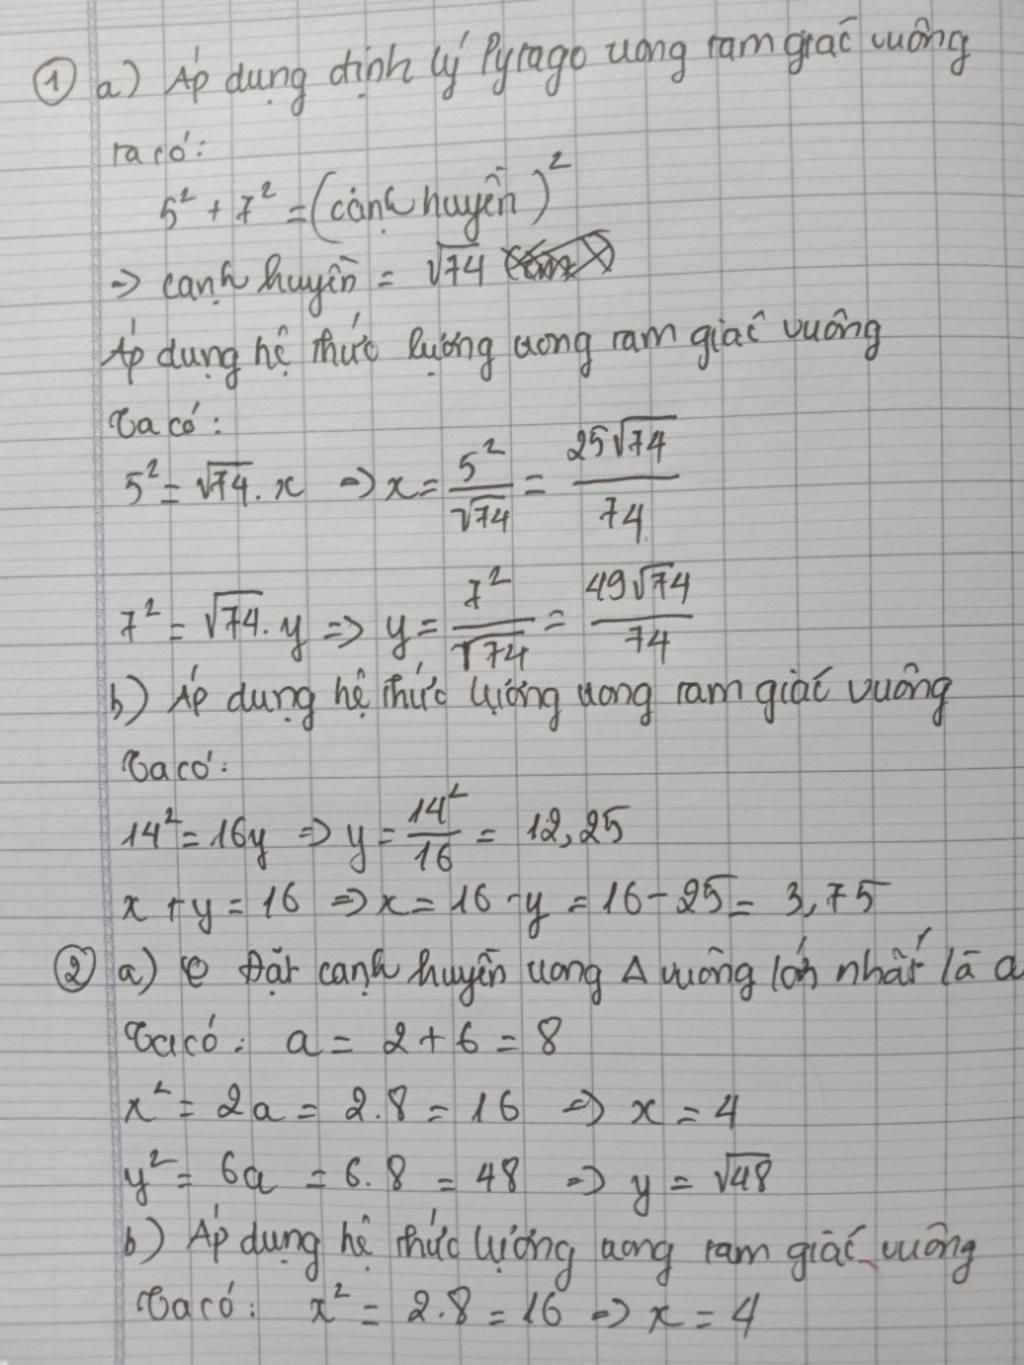 ① a) Áp dụng định lý Pytago trong tam giác vuông
ta có:
5² + 7² = (cạnh huyền)²
⇒ cạnh huyền = √74
Áp dụng hệ thức lượng trong tam giác vuông
Ta có:
5² = √74 . x ⇒ x = 5²/√74 = 25√74/74
7² = √74 . y ⇒ y = 7²/√74 = 49√74/74
b) Áp dụng hệ thức lượng trong tam giác vuông
Ta có:
14² = 16y ⇒ y = 14²/16 = 12,25
x + y = 16 ⇒ x = 16 - y = 16 - 25 = 3,75
② a) Đặt cạnh huyền trong Δ vuông lớn nhất là a
Ta có: a = 2 + 6 = 8
x² = 2a = 2.8 = 16 ⇒ x = 4
y² = 6a = 6.8 = 48 ⇒ y = √48
b) Áp dụng hệ thức lượng trong tam giác vuông
Ta có: x² = 2.8 = 16 ⇒ x = 4